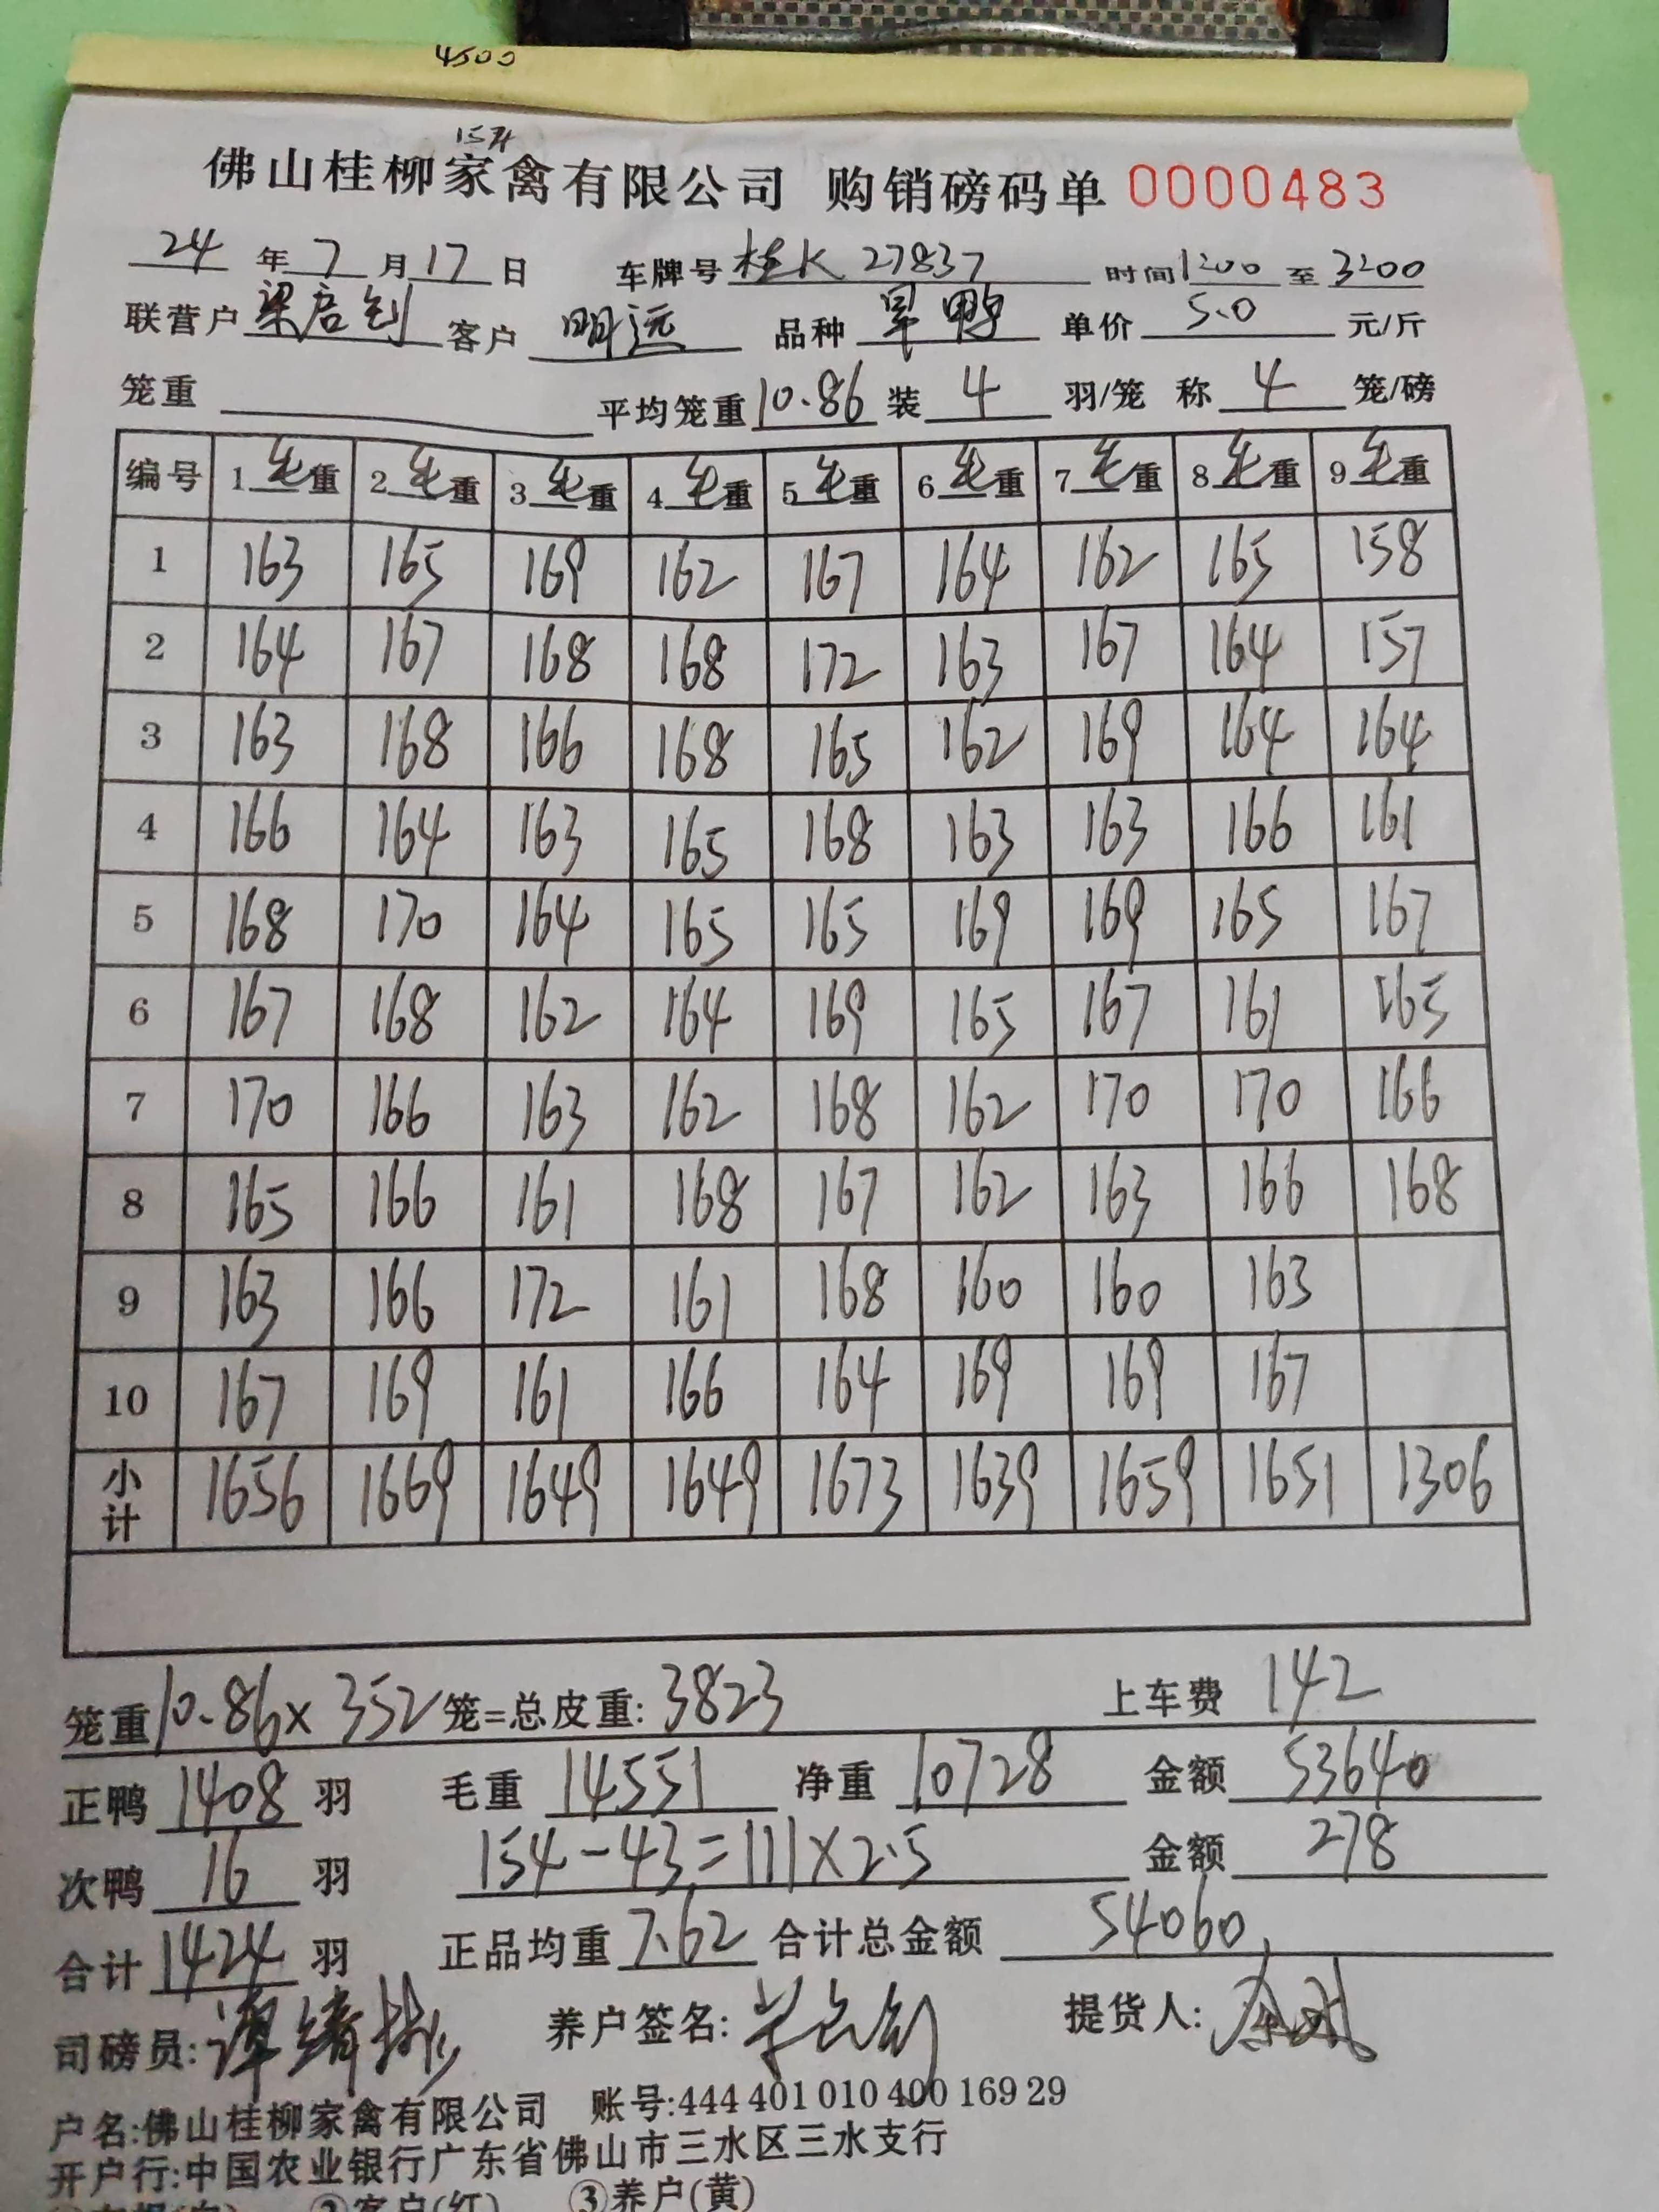 4500
佛山桂柳家禽有限公司 购销磅码单 0000483
24 年 7 月 17 日 车牌号 桂K 27837 时间 1200 至 3200
联营户 客户 明远 品种 旱鸭 单价 5.0 元/斤
笼重 平均笼重 10.86 装 4 羽/笼 称 4 笼/磅
编号 1 毛重 2 毛重 3 毛重 4 毛重 5 毛重 6 毛重 7 毛重 8 毛重 9 毛重
1 163 165 169 162 167 164 162 165 158
2 164 167 168 168 172 163 167 164 157
3 163 168 166 168 165 162 169 164 164
4 166 164 163 165 168 163 163 166 161
5 168 170 164 165 165 169 169 165 167
6 167 168 162 164 169 165 167 161 165
7 170 166 163 162 168 162 170 170 166
8 165 166 161 168 167 162 163 166 168
9 163 166 172 161 168 160 160 163
10 167 169 161 166 164 169 169 167
小计 1656 1669 1649 1649 1673 1639 1659 1651 1306
笼重 10.86 x 352 笼=总皮重: 3823 上车费 142
正鸭 1408 羽 毛重 14551 净重 10728 金额 53640
次鸭 16 羽 154-43=111×2.5 金额 278
合计 1424 羽 正品均重 7.62 合计总金额 54060
司磅员: 养户签名: 提货人:
户名:佛山桂柳家禽有限公司 账号:444 401 010 400 169 29
开户行:中国农业银行广东省佛山市三水区三水支行
②客户(红) ③养户(黄)